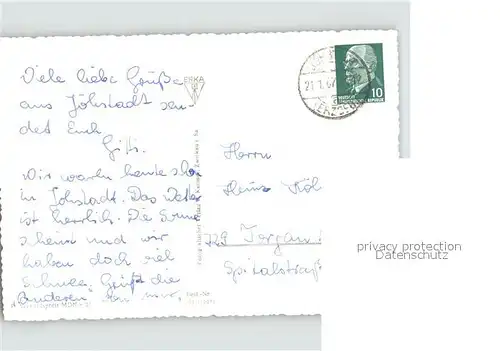 Viele liebe Grüße
aus Jöhstadt sen-
det Euch
Gitti.
Wir waren heute schon
in Jöhstadt. Das Wetter
ist herrlich. Die Sonne
scheint und wir
haben doch viel
Schnee. Grüßt die
Anderen von mir,
ERKA
21.1.67
10
DEUTSCHE
DEMOKRATISCHE REPUBLIK
Herrn
Heinz Köl
729 Torgau
Spitalstraß
privacy protection
Datenschutz